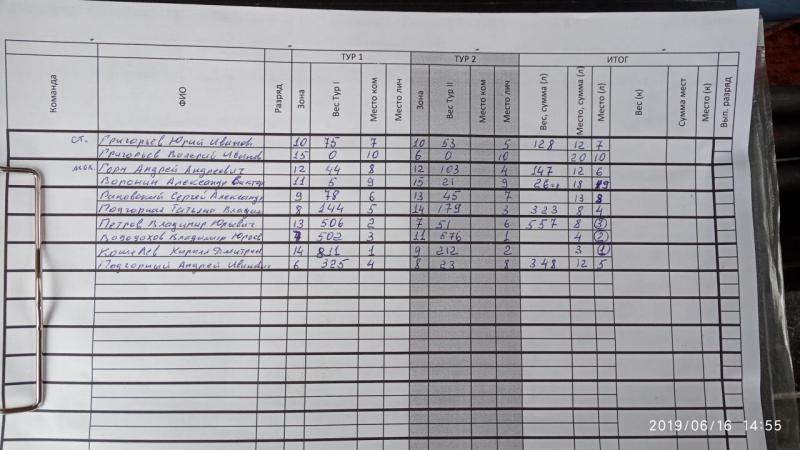 ТУР 1 ТУР 2 ИТОГ
Команда ФИО Разряд Зона Вес Тур I Место ком Место лич Зона Вес Тур II Место ком Место лич Вес, сумма (л) Место, сумма (л) Место (л) Вес (к) Сумма мест Место (к) Вып. разряд
ст. Григорьев Юрий Иванов 10 75 7 10 53 5 128 12 7
Григорьев Валерий Иванов 15 0 10 6 0 10 20 10
Горн Андрей Андреевич 12 44 8 12 103 4 147 12 6
Воронин Александр Виктор 11 5 9 15 21 9 18 9
Раковский Сергей Александр 9 78 6 13 45 7 13 8
Подгорная Татьяна Влади 8 144 5 14 179 3 323 8 4
Петров Владимир Юрьевич 13 506 2 7 51 6 557 8 3
Владимир Юрьев 7 502 3 11 576 1 4 2
Кошелев Кирилл Дмитрие 14 811 1 9 212 2 3 1
Подгорный Андрей Иванович 6 325 4 8 23 8 348 12 5
2019/06/16 14:55